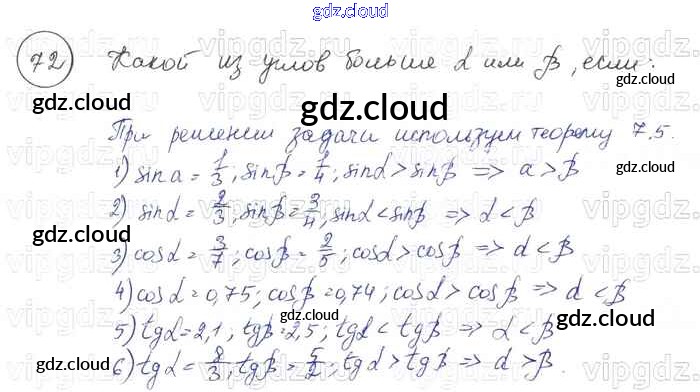 gdz.cloud
72 Какой из углов больше α или β, если:
gdz.cloud
gdz.cloud
При решении задачи используем теорему 7.5.
gdz.cloud
1) sin a = 1/3; sin β = 1/4; sin α > sin β => a > β
2) sin α = 2/3; sin β = 3/4; sin α < sin β => α < β
gdz.cloud
gdz.cloud
3) cos α = 3/7; cos β = 2/5; cos α > cos β => α < β
4) cos α = 0,75; cos β = 0,74; cos α > cos β => α < β
gdz.cloud
5) tg α = 2,1; tg β = 2,5; tg α < tg β => α < β
gdz.cloud
gdz.cloud
6) tg α = 8/3; tg β = 5/2; tg α > tg β => α > β.